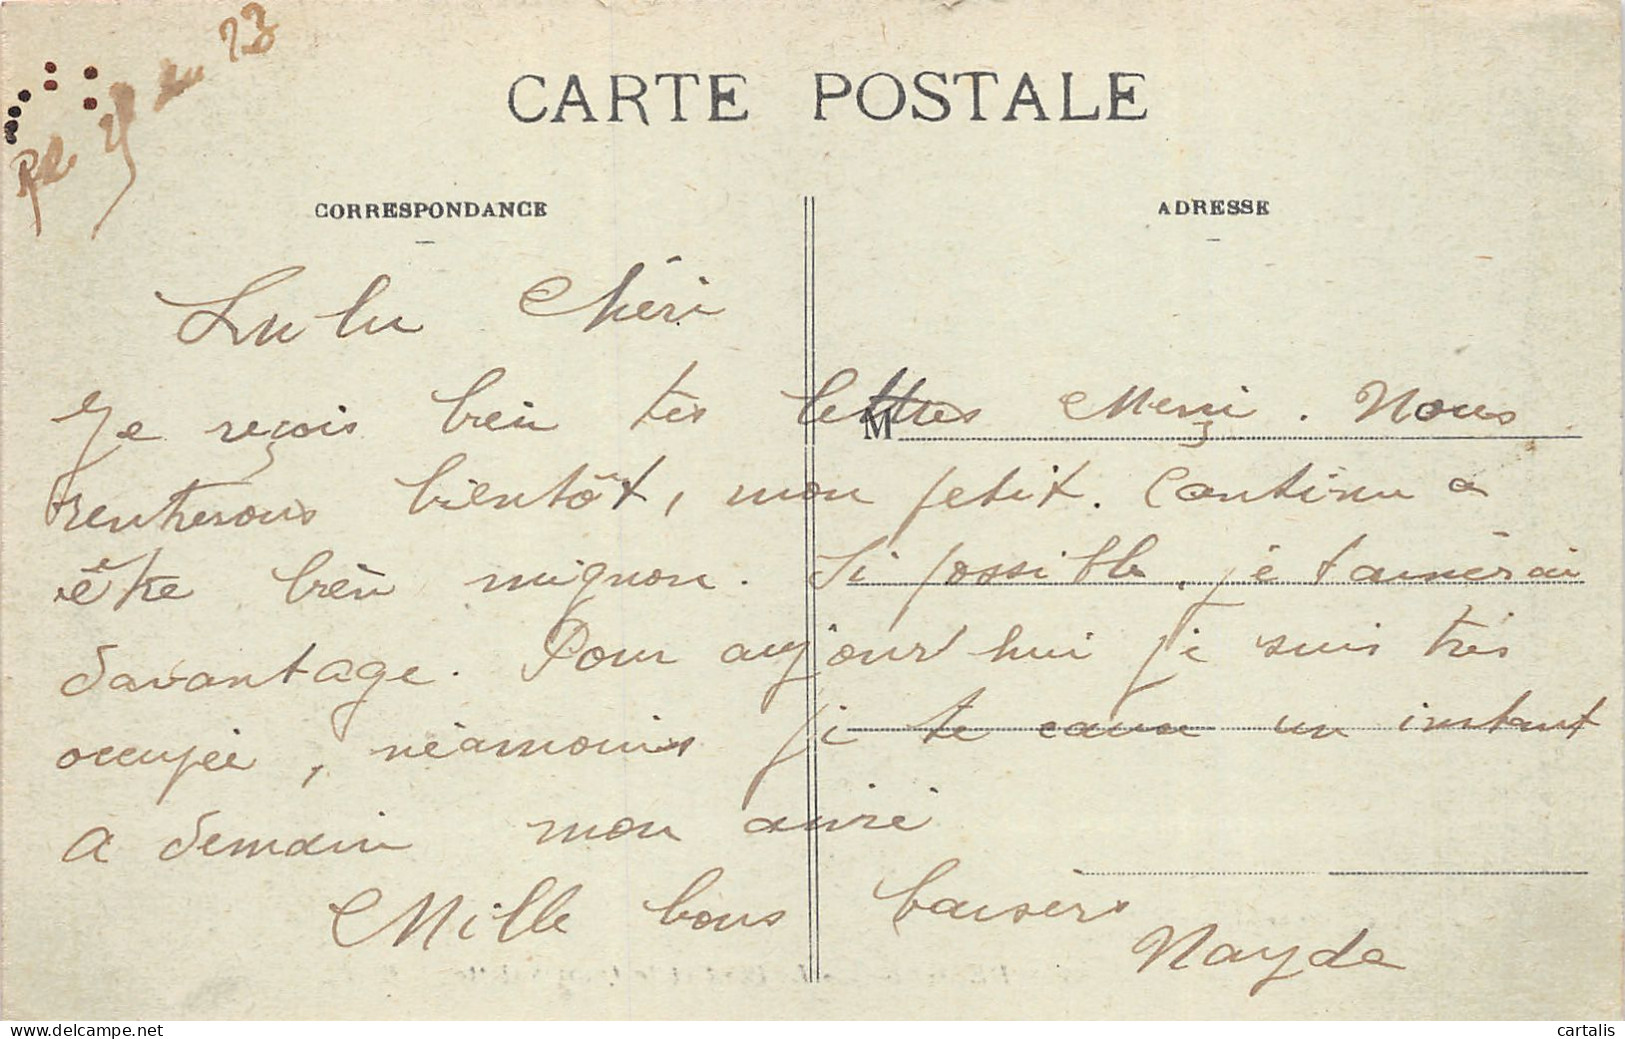 23
CARTE POSTALE
CORRESPONDANCE
ADRESSE
Lulu Chéri
M
Je reçois bien tes lettres Merci. Nous
rentrerons bientôt, mon petit. Continu a
être bien mignon. Si possible, je t'aimerai
davantage. Pour aujourd'hui je suis très
occupée, néamoins je te cause un instant
A demain mon aimé
Mille bons baisers
Nayda
delcampe.net
cartalis